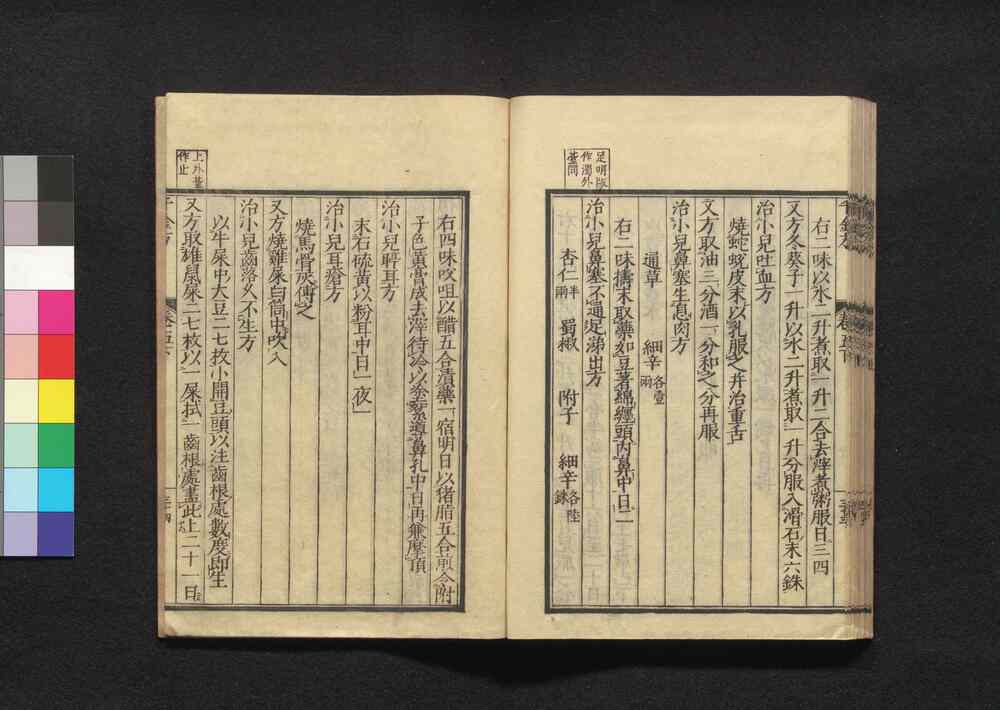 右二味以水二升煮取一升二合去滓煮粥服日三四
又方冬葵子一升以水二升煮取一升分服入滑石末六銖
治小兒吐血方
燒蛇蛻皮末以乳服之并治重舌
又方取油三分酒一分和之分再服
治小兒鼻塞生息肉方
通草 細辛各壹兩
右二味擣末取藥如豆著綿纏頭內鼻中日二
治小兒鼻塞不通涕出方
杏仁半兩 蜀椒 附子 細辛各陸銖
足明版
作濁外
臺同
右四味㕮咀以醋五合漬藥一宿明日以猪脂五合煎令附
子色黃膏成去滓待冷以塗絮導鼻孔中日再兼摩頂
治小兒聤耳方
末石硫黃以粉耳中日一夜一
治小兒耳瘡方
燒馬骨灰傅之
又方燒雞屎白筒中吹入
治小兒齒落久不生方
以牛屎中大豆二七枚小開豆頭以注齒根處數度即生
又方取雄鼠屎二七枚以一屎拭一齒根處盡此止二十一日
上外臺
作止